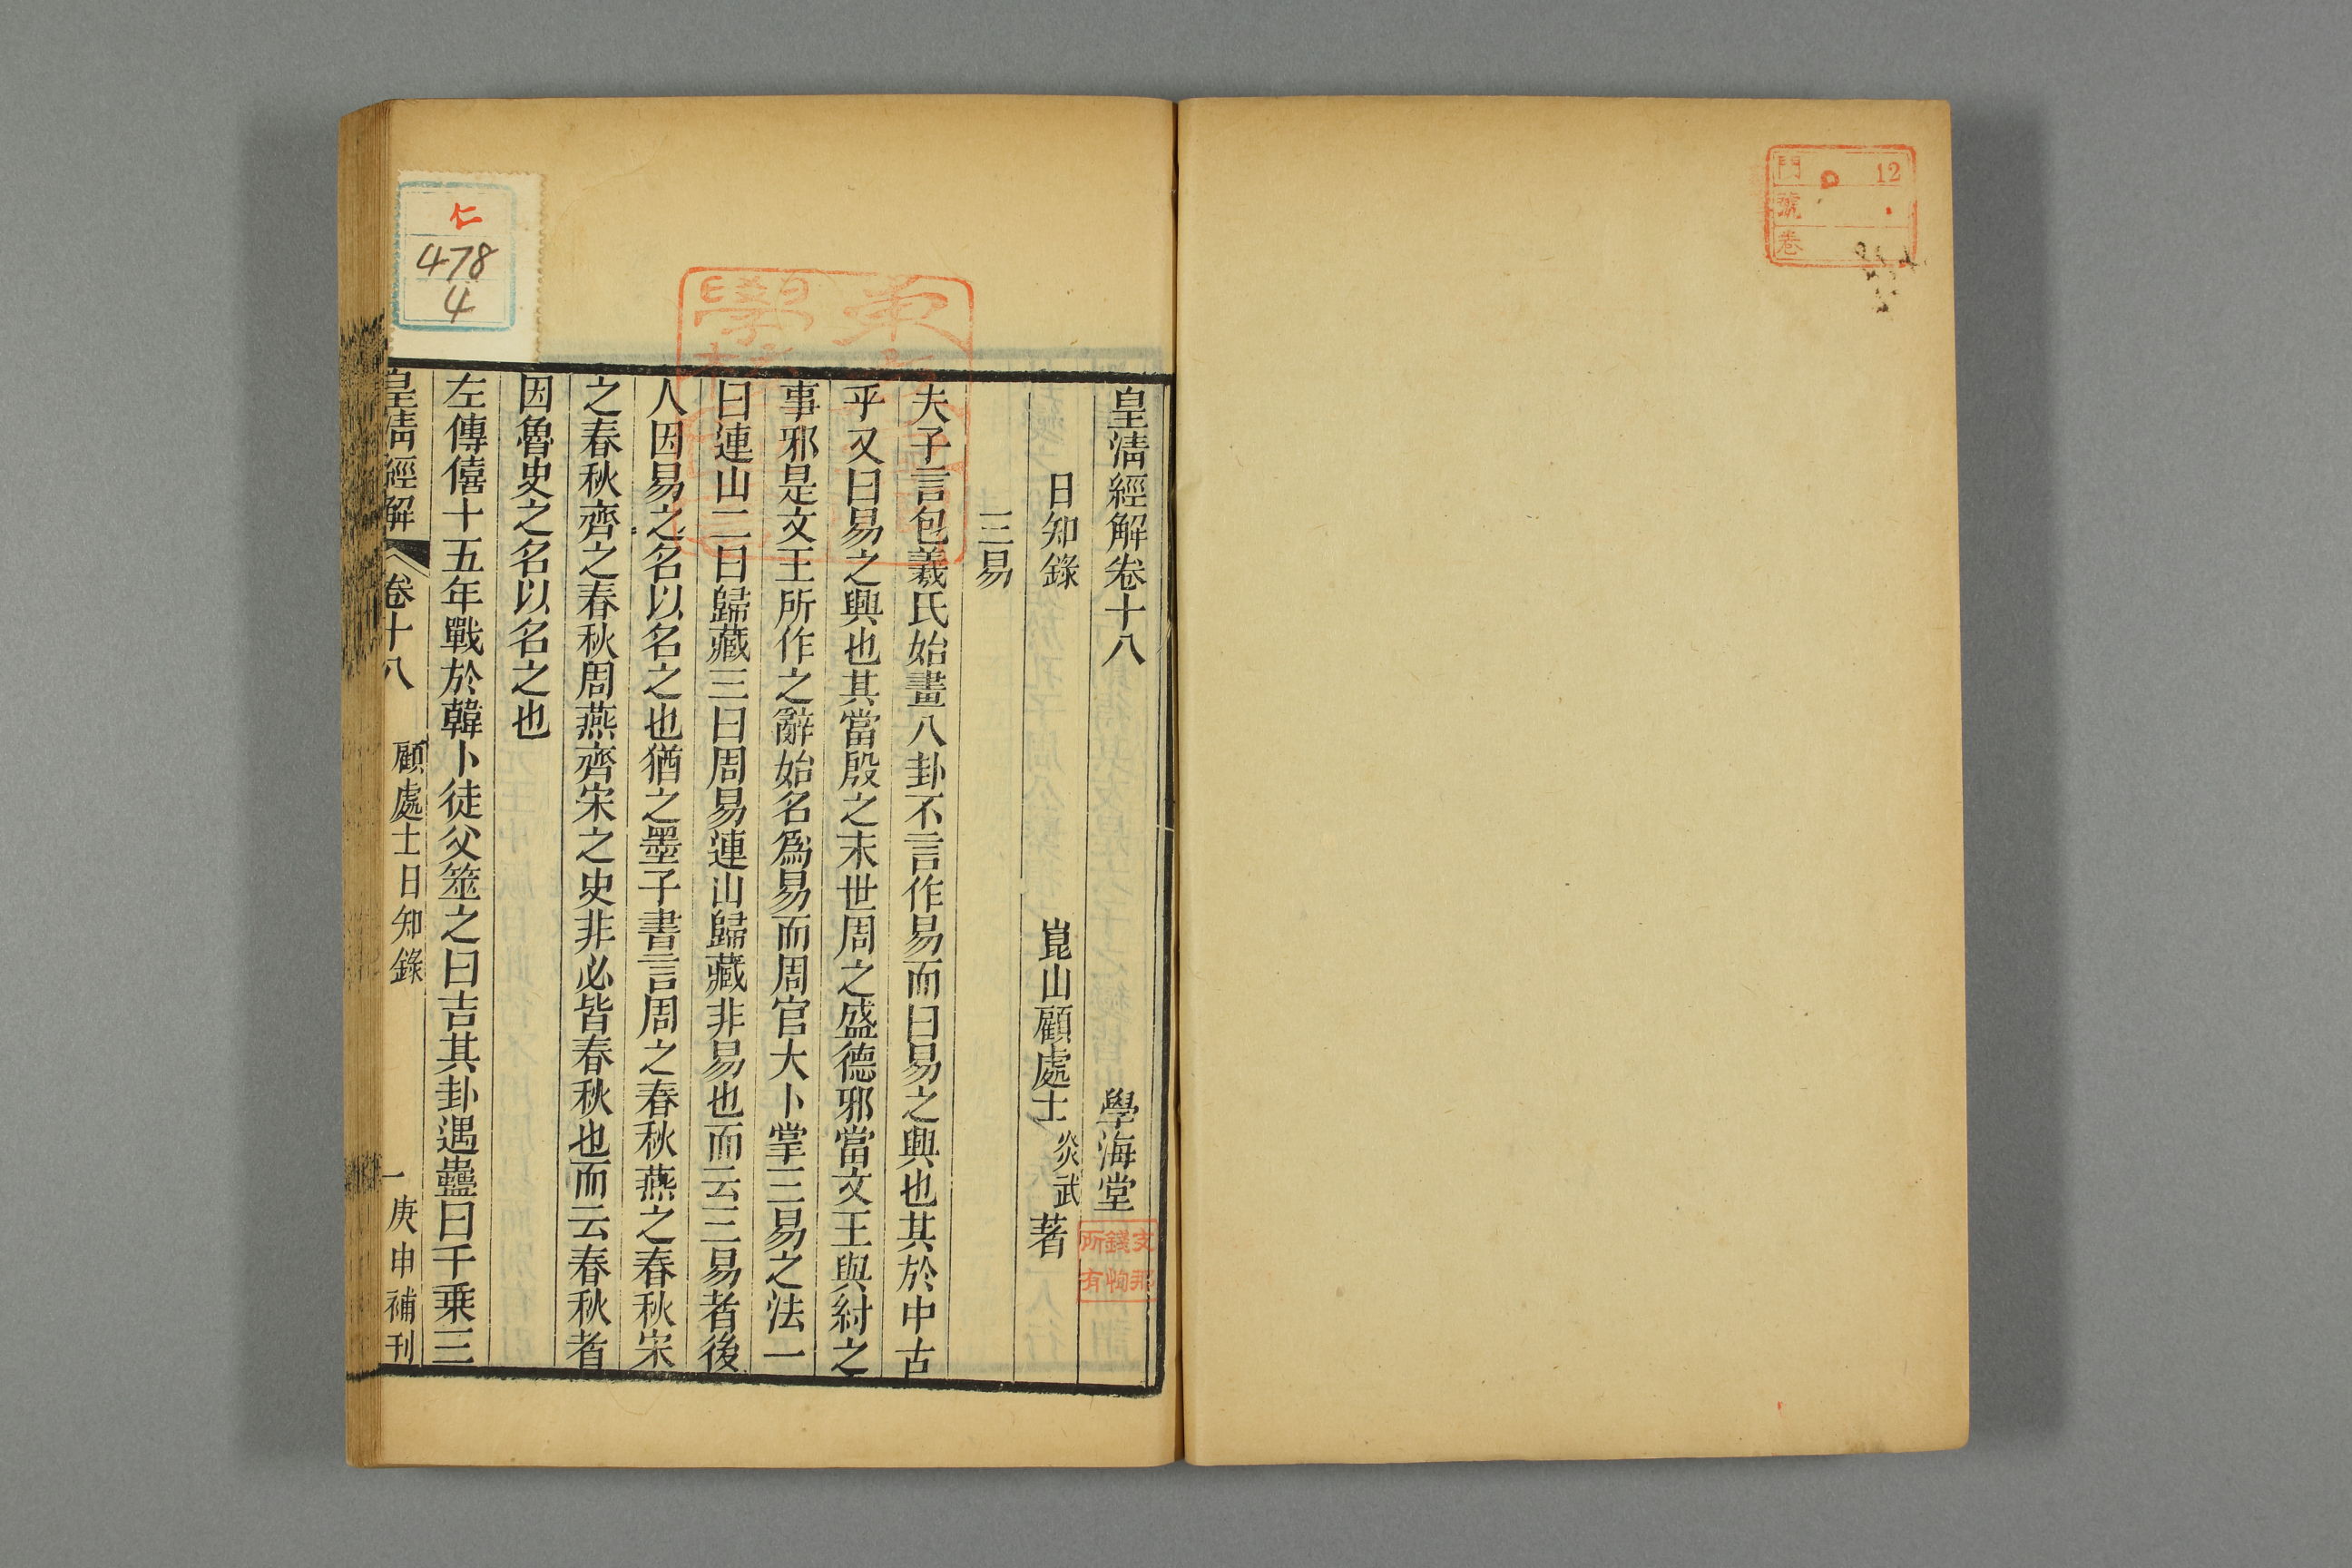 12
門
號
卷
皇淸經解卷十八 學海堂
日知錄 崑山顧處士炎武著
三易
夫子言包羲氏始畫八卦不言作易而曰易之興也其於中古
乎又曰易之興也其當殷之末世周之盛德邪當文王與紂之
事邪是文王所作之辭始名爲易而周官大卜掌三易之法一
曰連山二曰歸藏三曰周易連山歸藏非易也而云三易者後
人因易之名以名之也猶之墨子書言周之春秋燕之春秋宋
之春秋齊之春秋周燕齊宋之史非必皆春秋也而云春秋者
因魯史之名以名之也
左傳僖十五年戰於韓卜徒父筮之曰吉其卦遇蠱曰千乘三
皇淸經解 卷十八 顧處士日知錄 一 庚申補刊
支那
錢恂
所有
仁
478
4